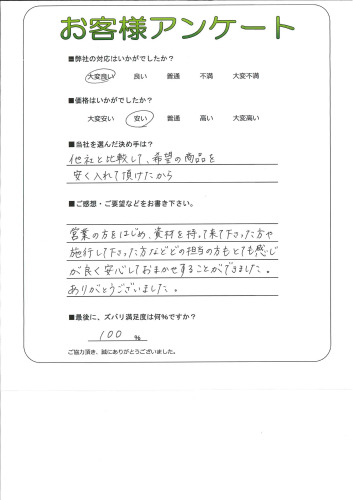 お客様アンケート
■弊社の対応はいかがでしたか？
大変良い 良い 普通 不満 大変不満
■価格はいかがでしたか？
大変安い 安い 普通 高い 大変高い
■当社を選んだ決め手は？
他社と比較して、希望の商品を
安く入れて頂けたから
■ご感想・ご要望などをお書き下さい。
営業の方をはじめ、資材を持って来て下さった方や
施行して下さった方などどの担当の方もとても感じ
が良く安心しておまかせすることができました。
ありがとうございました。
■最後に、ズバリ満足度は何％ですか？
100 ％
ご協力頂き、誠にありがとうございました。